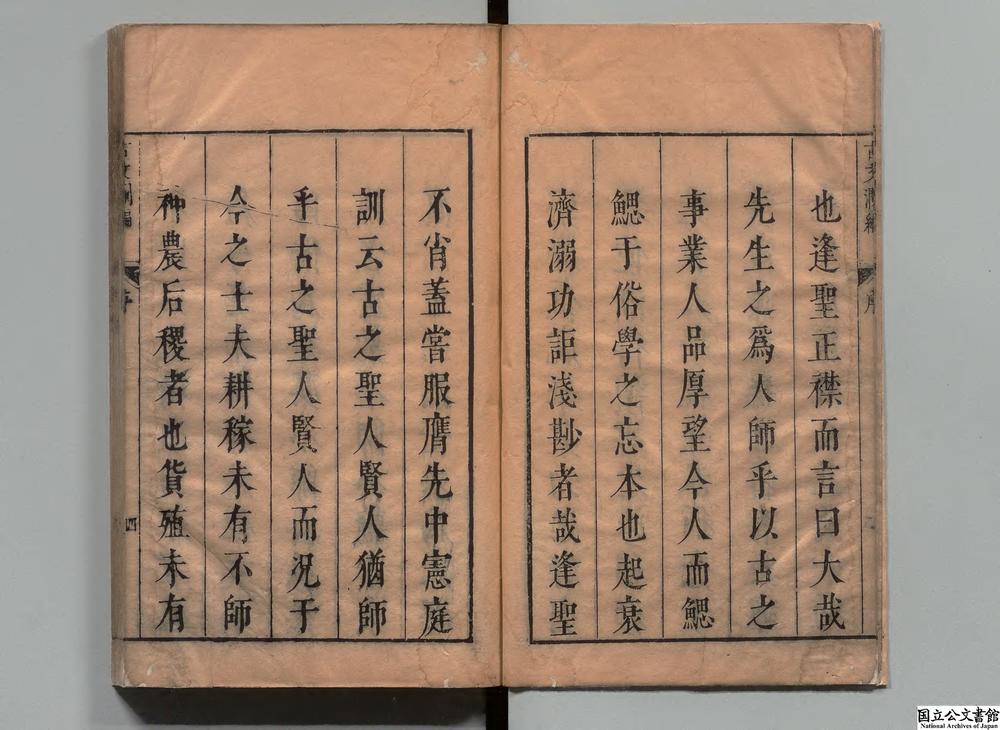 也逢聖正襟而言曰大哉
先生之爲人師乎以古之
事業人品厚望今人而鰓
鰓于俗學之忘本也起衰
濟溺功詎淺尠者哉逢聖
不肖蓋嘗服膺先中憲庭
訓云古之聖人賢人猶師
乎古之聖人賢人而況于
今之士夫耕稼未有不師
神農后稷者也貨殖未有
序
四
国立公文書館
National Archives of Japan